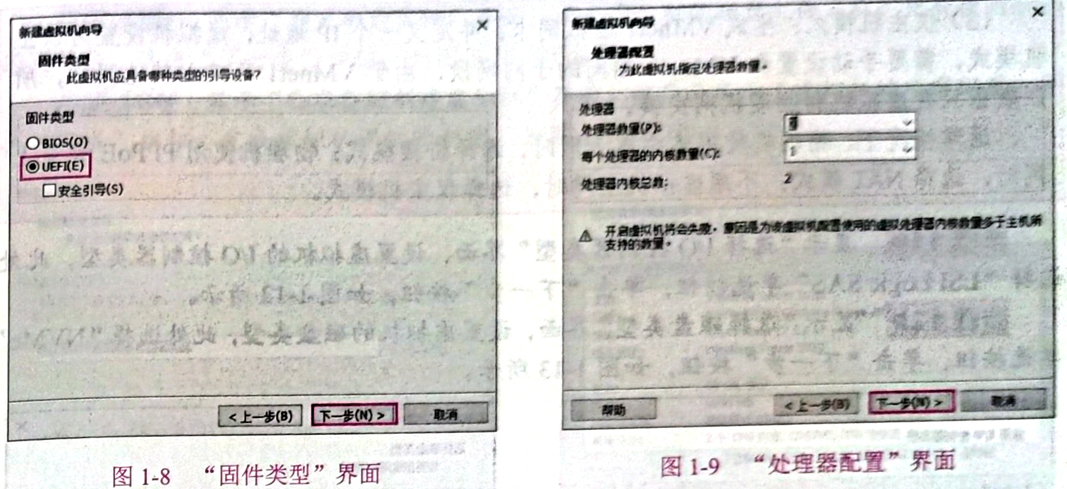 新建虚拟机向导
固件类型
此虚拟机应具备哪种类型的引导设备?
固件类型
BIOS(O)
UEFI(E)
安全引导(S)
<上一步(B)
下一步(N) >
取消
图 1-8 “固件类型”界面
新建虚拟机向导
处理器配置
为此虚拟机指定处理器数量。
处理器
处理器数量(P):
每个处理器的内核数量(C):
1
处理器内核总数:
2
开启虚拟机将会失败，原因是为该虚拟机配置使用的虚拟处理器内核数量多于主机所
支持的数量。
帮助
<上一步(B)
下一步(N) >
取消
图 1-9 “处理器配置”界面